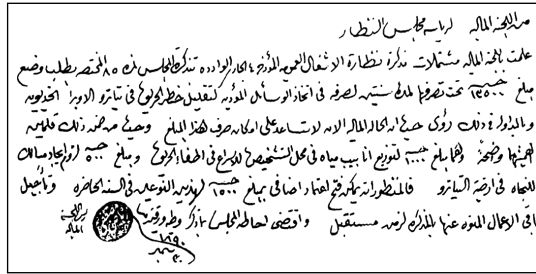 من اللجنة المالية لرياسة مجلس النظار
علمت باللجنة المالية مشتملات تذكرة نظارة الاشغال العمومية المؤرخة الجارى الواردة بتذكرة المجلس نمرة ٨٥ المختصة بطلب وضع
مبلغ ١٣٥٠٠ جنيه تحت تصرفها لمدة سنتين لصرفه فى اتخاذ الوسائل المؤدية لتقليل خطر الحريق فى تياترو الاوبرا الخديوية
وبالمداولة فى ذلك رؤى حيث ان الحالة المالية الان لا تساعد على امكان صرف هذا المبلغ وحيث من ضمن ذلك قلمين
اهميتهما واضحة وهما مبلغ ١٠٠٠ جنيه لتوزيع انابيب مياه فى محل التشخيص للاسراع فى اطفاء الحريق ومبلغ ٥٠٠ جنيه لزوم ايجاد مسالك
للنجاة فى ارضية التياترو فالمنظور انه يمكن فتح اعتماد اضافى بمبلغ ١٥٠٠ جنيه لهذين النوعين فى السنة الحاضرة وتأجيل
باقى الاعمال المنوه عنها بالمذكرة لزمن مستقبل واقتضى لحاطة المجلس بما ذكر وطيه ورقتين
١٨٩٠
اللجنة
المالية